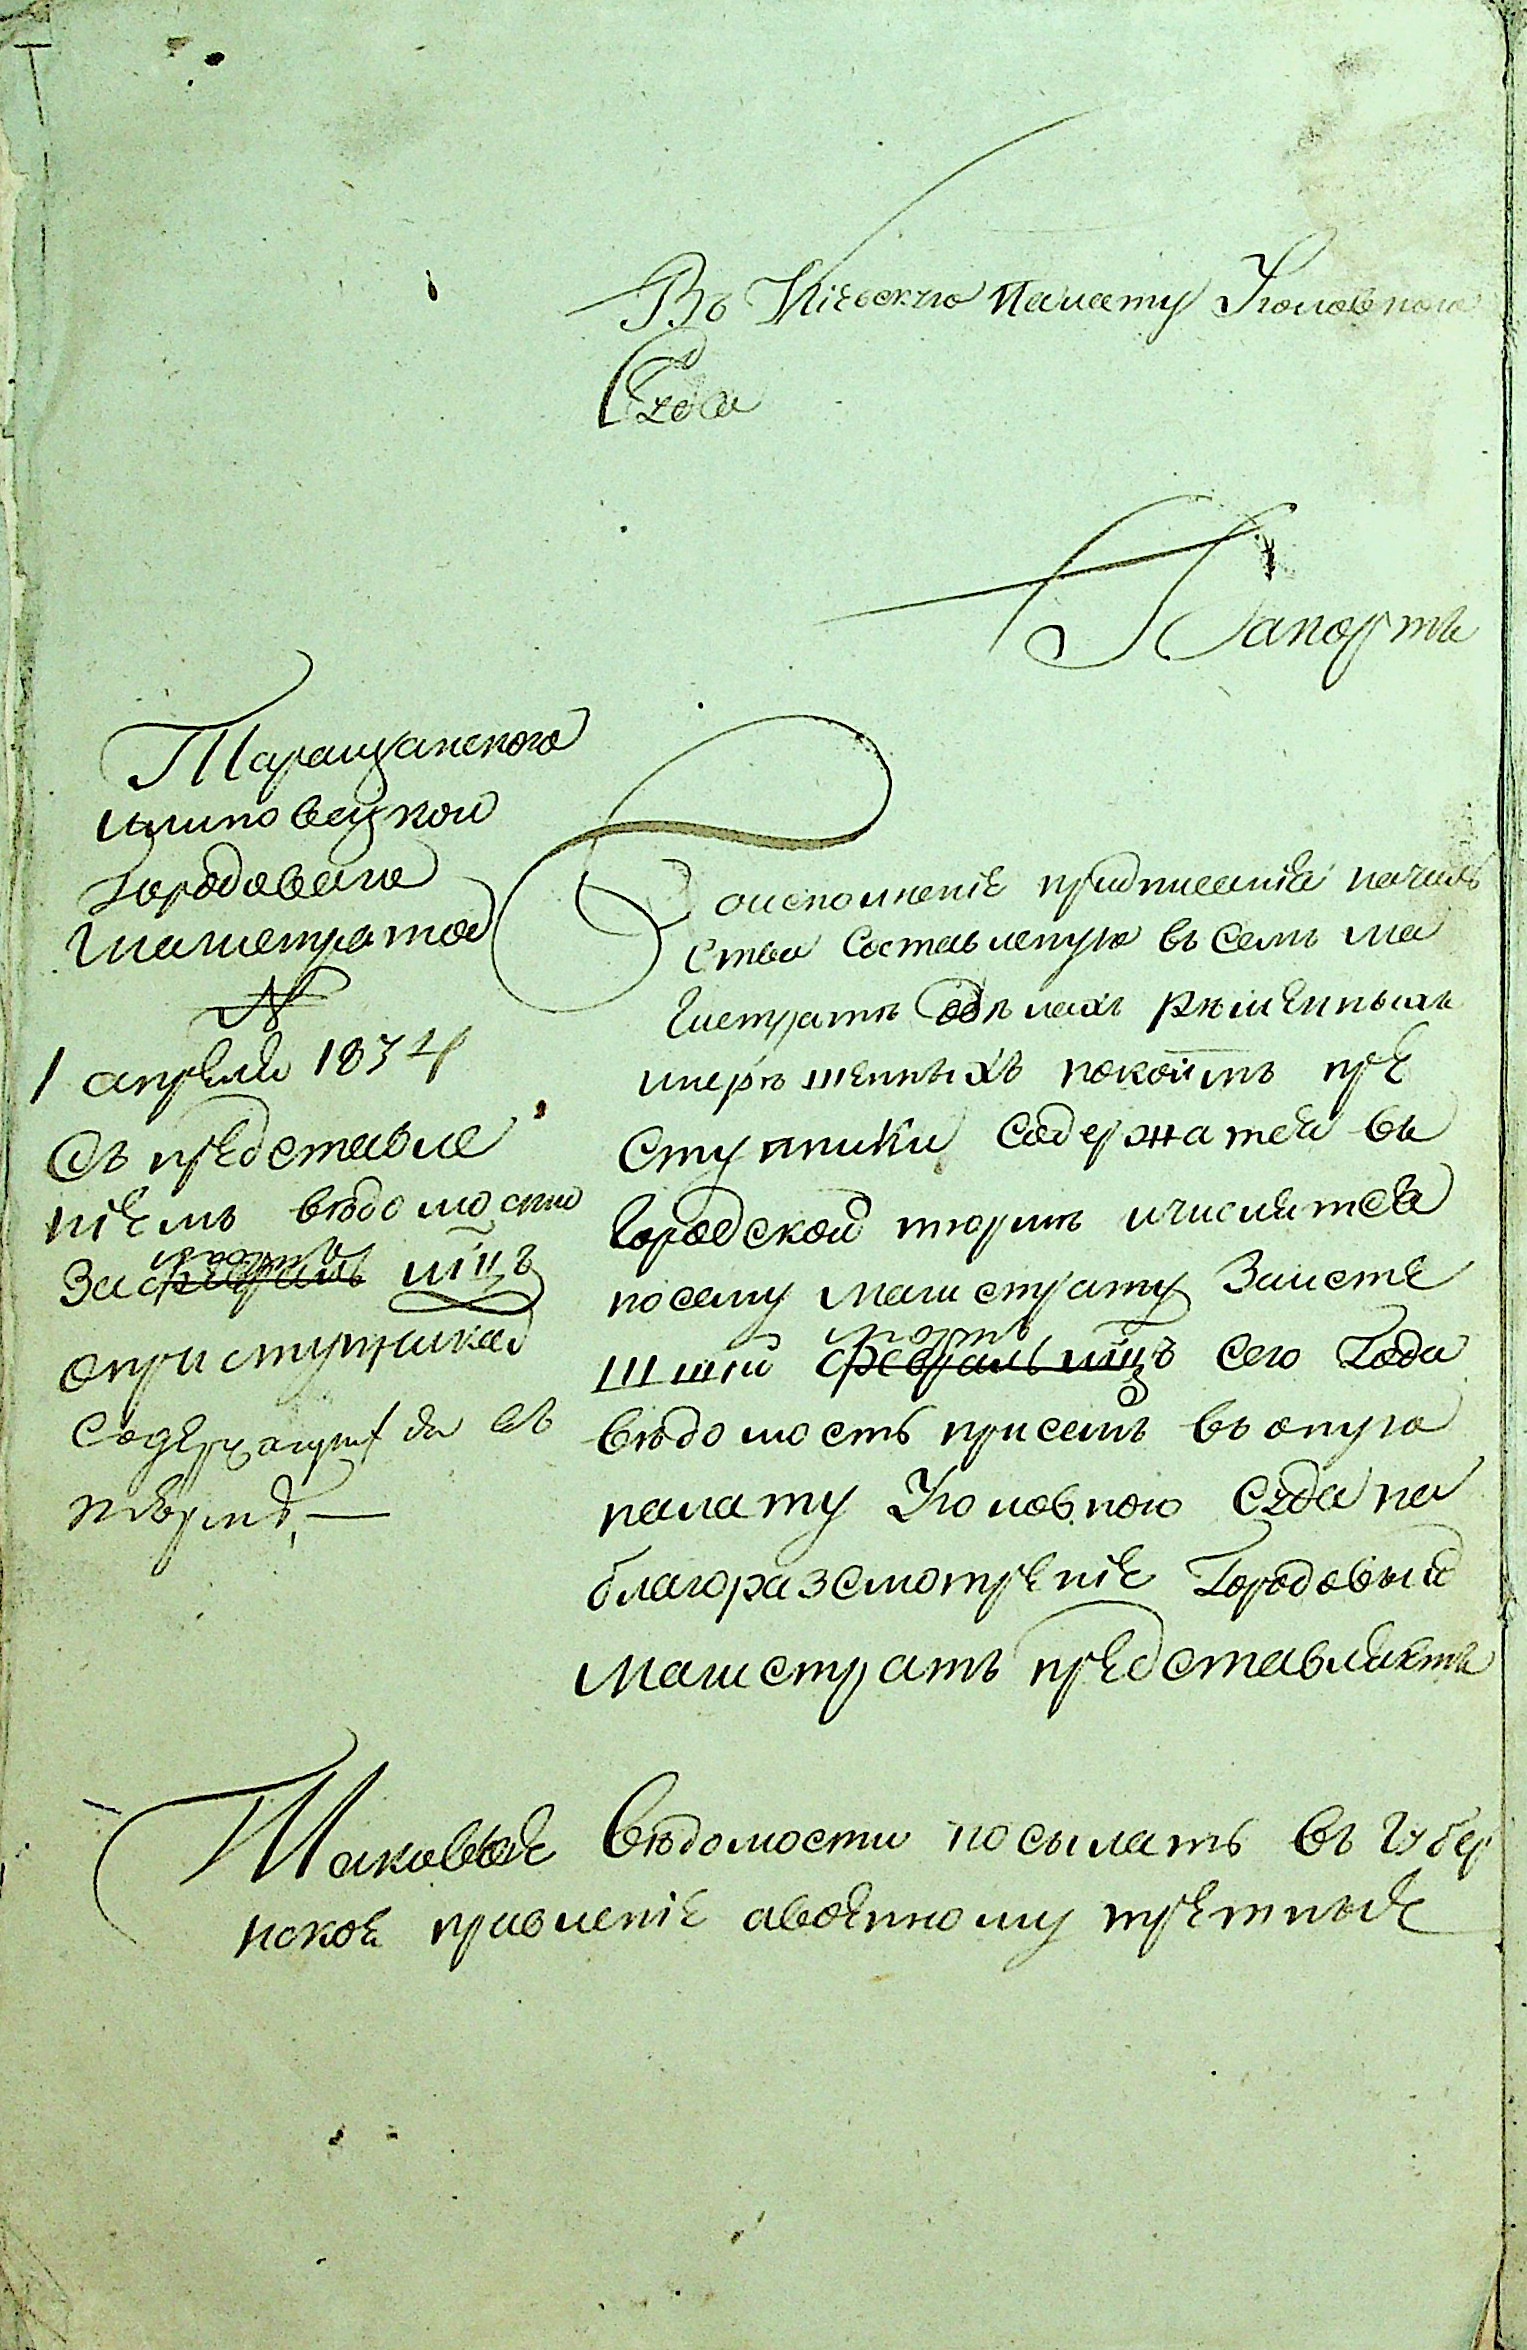 Въ Кіевскую Палату Уголовнаго
Суда
Рапортъ
Таращанского
илиповецкои
Городоваго
Магистрата
№
1 апреля 1834
Съ представле
ніемъ вѣдомости
За февраль мартъ мцъ
оприступникад
Содержащихся въ
тюрмѣ,
Воисполненіе предписанія началь
ства составленую въ семъ ма
гистратѣ одѣлахъ рѣшенныхъ
инерѣшенныхъ покоимъ пре
ступники содержатся въ
Городской тюрмѣ ичислится
посему магистрату Заисте
шшій февраль мцъ мартъ сего Года
вѣдомость присемъ въ оную
палату Уголовною Суда на
благоразсмотреніе Городовый
магистратъ представляетъ
Таковые вѣдомости посылать въ Губер
нское правленіе авоенному третные